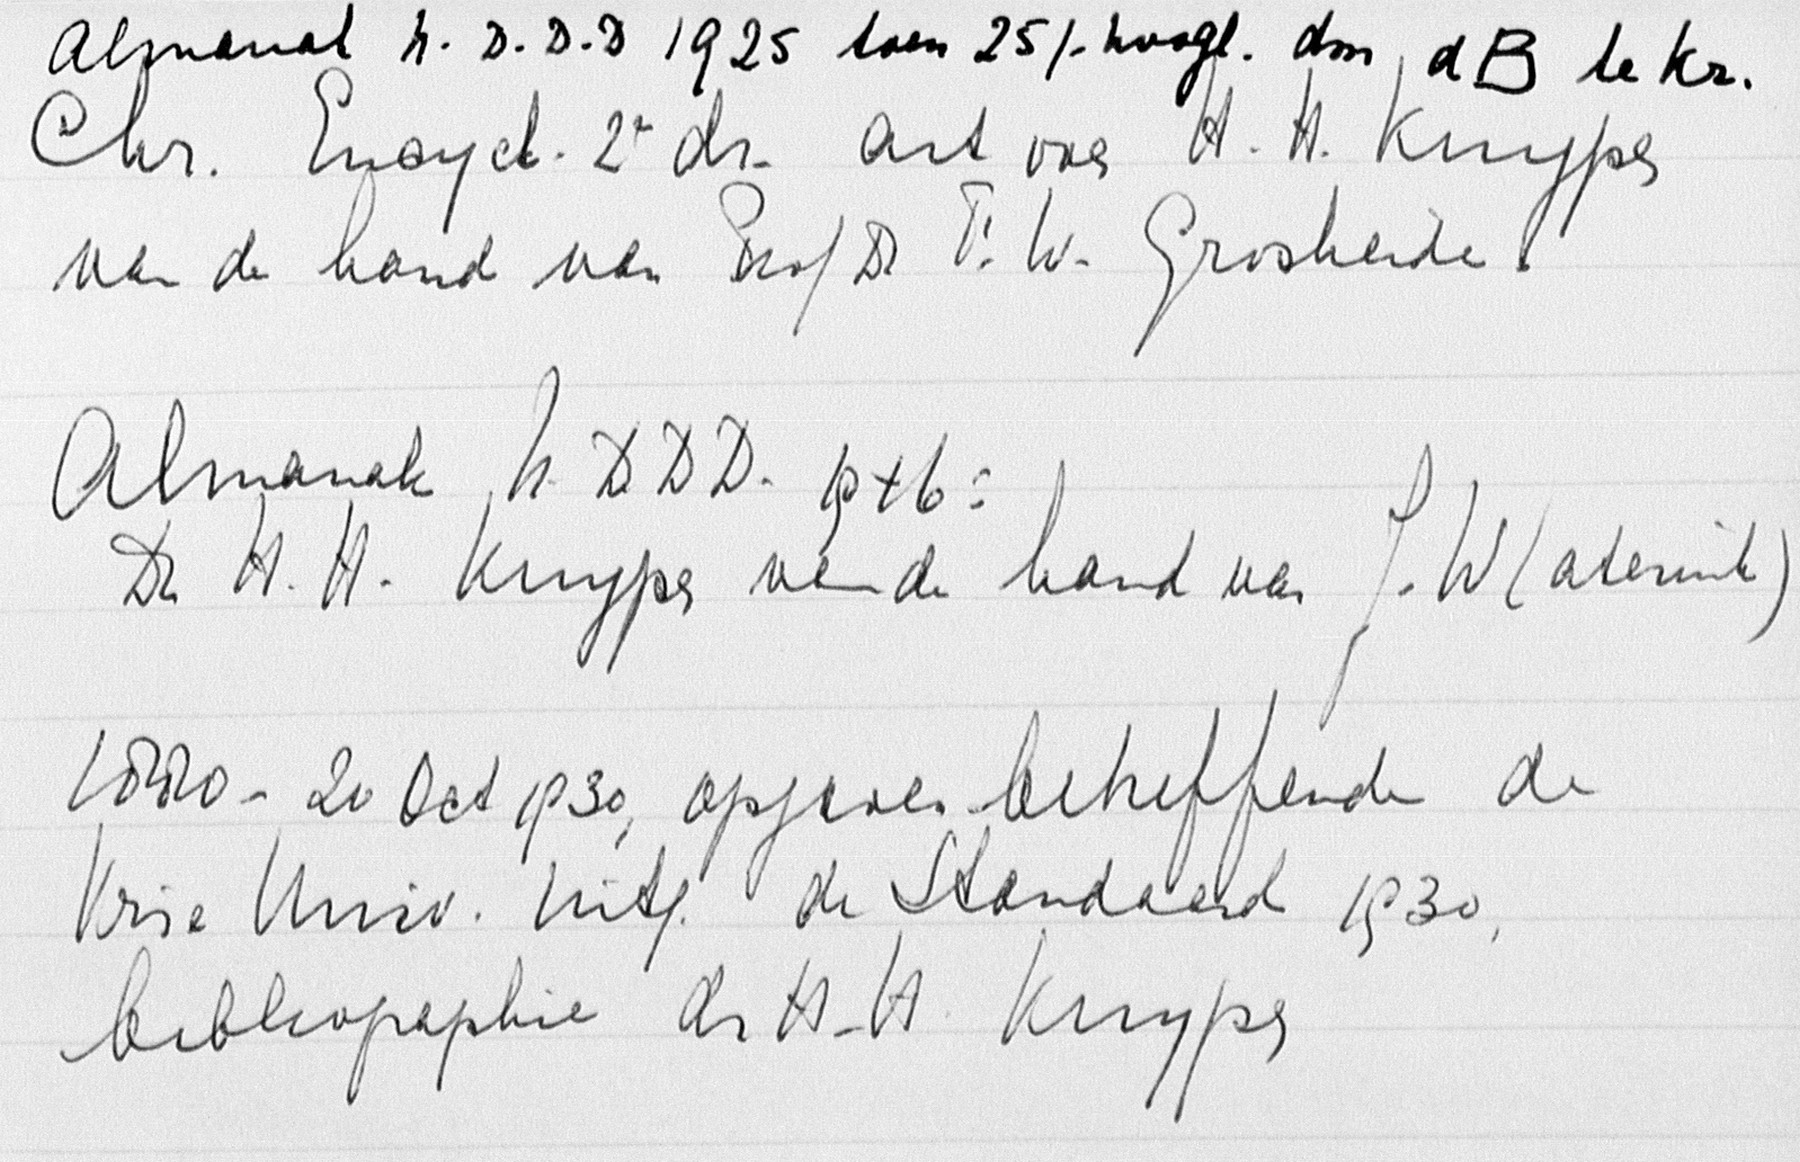 Almanak N.D.D.D 1925 toen 25 j. hoogl. door dB te Kr.
Chr. Encycl. 2e dr. art over H. H. Kuyper
van de hand van Prof Dr F. W. Grosheide.
Almanak N. D D D. 1946:
Dr H. H. Kuyper van de hand van J. W(aterink)
1880 - 20 Oct 1930, opgaven betreffende de
Vrije Univ. Uitg. de Standaard 1930,
bibliographie dr H. H. Kuyper